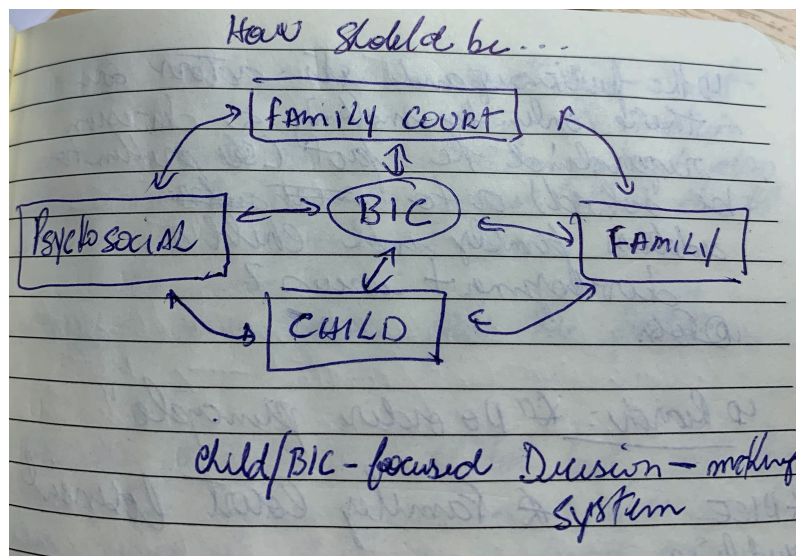 How should be...
FAMILY COURT
BIC
PSYCHOSOCIAL
FAMILY
CHILD
child/BIC-focused Decision-making
system